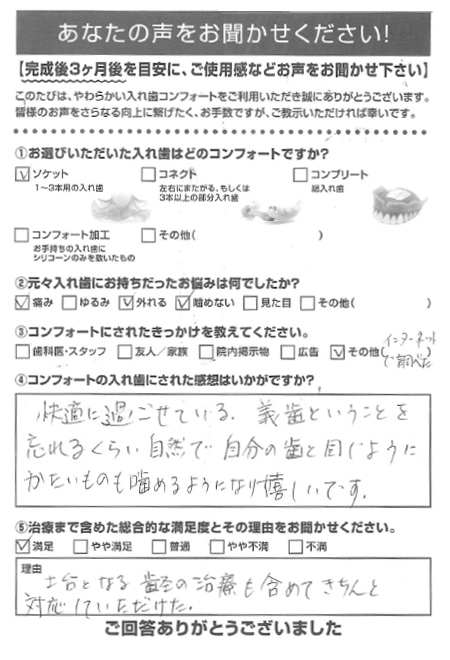 あなたの声をお聞かせください!
【完成後3ヶ月後を目安に、ご使用感などお声をお聞かせ下さい】
このたびは、やわらかい入れ歯コンフォートをご利用いただき誠にありがとうございます。
皆様のお声をさらなる向上に繋げたく、お手数ですが、ご教示いただければ幸いです。
①お選びいただいた入れ歯はどのコンフォートですか?
☑ソケット
1〜3本用の入れ歯
□コネクト
左右にまたがる、もしくは
3本以上の部分入れ歯
□コンプリート
総入れ歯
□コンフォート加工
お手持ちの入れ歯に
シリコーンのみを敷いたもの
□その他( )
②元々入れ歯にお持ちだったお悩みは何でしたか?
☑痛み □ゆるみ ☑外れる ☑噛めない □見た目 □その他( )
③コンフォートにされたきっかけを教えてください。
□歯科医・スタッフ □友人/家族 □院内掲示物 □広告 ☑その他(インターネットで調べた)
④コンフォートの入れ歯にされた感想はいかがですか?
快適に過ごせている。義歯ということを
忘れるくらい自然で自分の歯と同じように
かたいものも噛めるようになり嬉しいです。
⑤治療まで含めた総合的な満足度とその理由をお聞かせください。
☑満足 □やや満足 □普通 □やや不満 □不満
理由
土台となる歯茎の治療も含めてきちんと
対応していただけた。
ご回答ありがとうございました